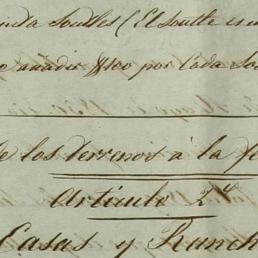 Soulles (El soulle es un
añadir $100 por Cada
de los terrenos á la
Artículo 2º
Casas y Ranch